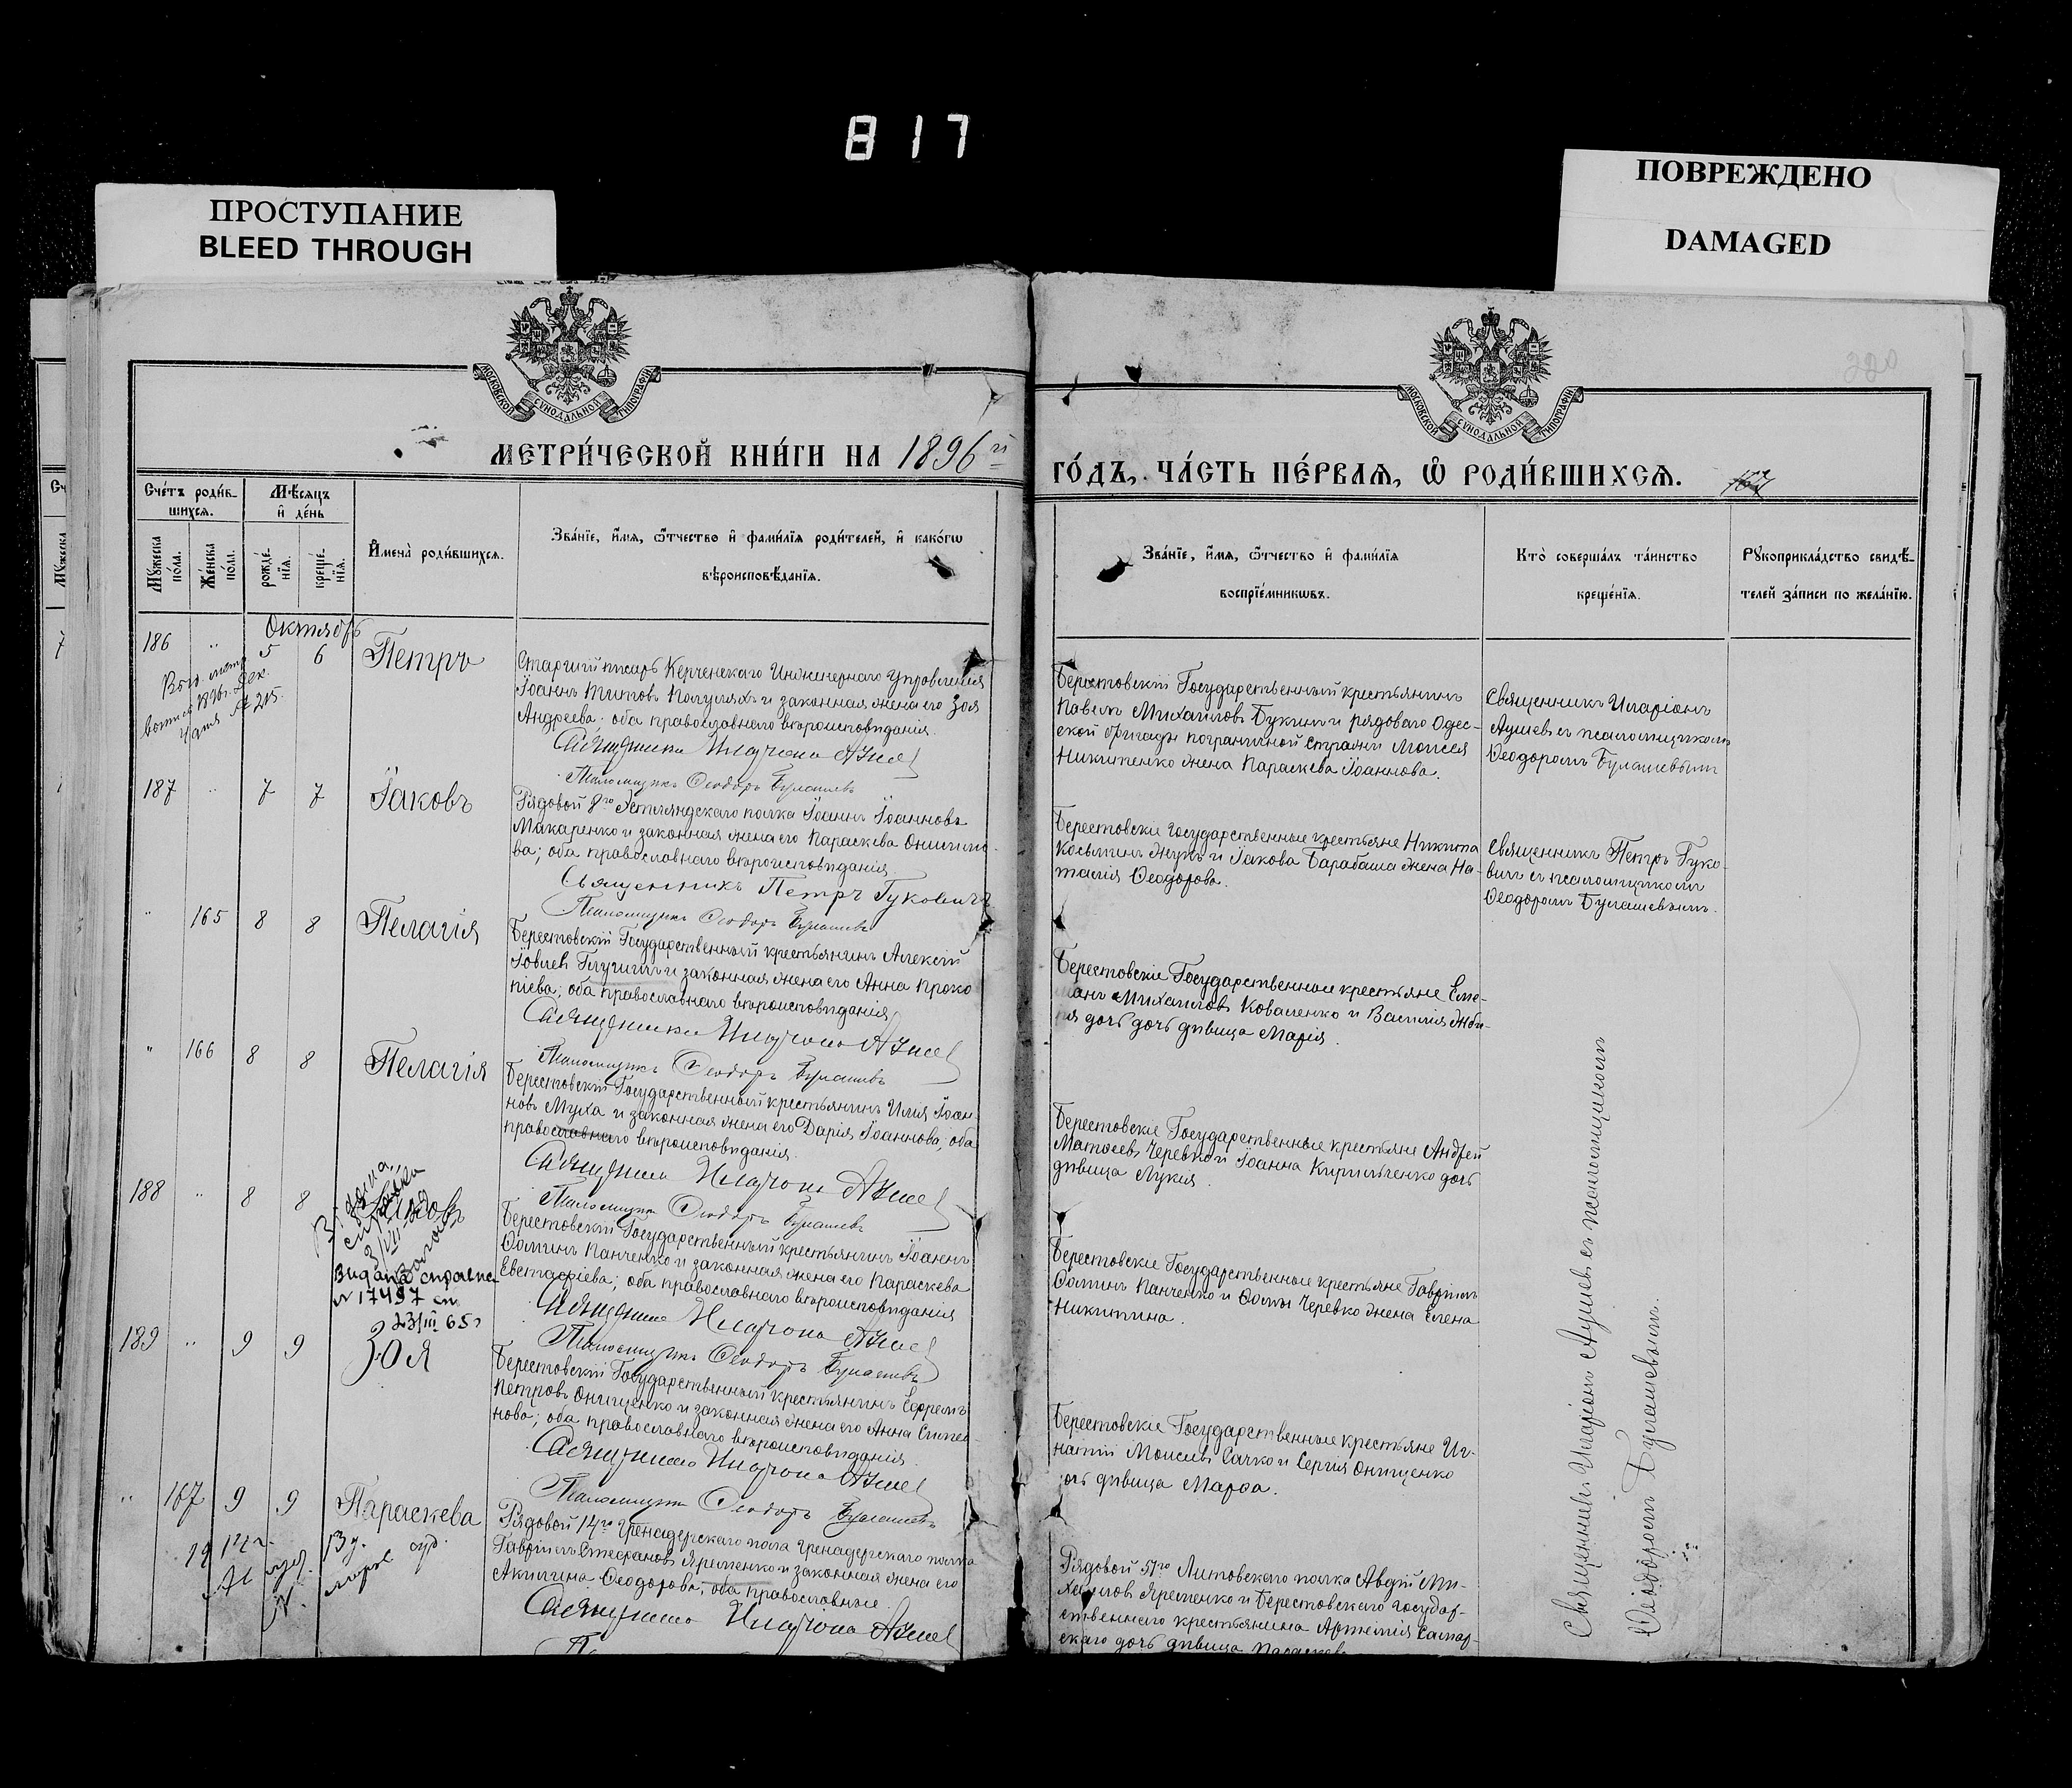 817
ПРОСТУПАНИЕ
BLEED THROUGH
ПОВРЕЖДЕНО
DAMAGED
МОСКОВСКОЙ СУНОДАЛЬНОЙ ТИПОГРАФІИ
МОСКОВСКОЙ СУНОДАЛЬНОЙ ТИПОГРАФІИ
320
МЕТРИ́ЧЕСКОЙ КНИ́ГИ НА 1896й
ГО́ДЪ, ЧА́СТЬ ПЕ́РВАЯ, Ѡ РОДИ́ВШИХСЯ. 167
Сче́тъ роди́в-
шихся.
Мѣсяцъ
и де́нь
Мꙋжеска по́ла.
Же́нска по́ла.
рожде́-
нія.
креще́-
нія.
И̓мена̀ роди́вшихся.
Зва́нїе, и́мя, ѻ҆́тчество и҆ фами́лїя роди́телей, и҆ како́гѡ
вѣроисповѣданїя.
Зва́нїе, и́мя, ѻ҆́тчество и҆ фами́лїя
воспрїе́мникѡвъ.
Кто̀ соверша́лъ та́инство
креще́нїя.
Рꙋкоприкла́дство свидѣ́-
телей за́писи по жела́нїю.
Октябрь
186 " 5 6 Петръ
Старшій писарь Керченскаго Инженернаго Управленія
Іоаннъ Титовъ Полуляхъ и законная жена его Зоя
Андреева; оба православнаго вѣроисповѣданія.
Священникъ Иларіонъ
Псаломщикъ Ѳеодоръ Булашевъ
Берестовскій Государственный крестьянинъ
Павелъ Михаиловъ Букинъ и рядоваго Одес-
ской бригады пограничной стражи Моисея
Никитенко жена Параскева Іоаннова.
Священникъ Иларіонъ
псаломщикомъ
Ѳеодоромъ Булашевымъ
187 " 7 7 Іаковъ
Рядовой 8го Эстляндскаго полка Іоаннъ Іоанновъ
Макаренко и законная жена его Параскева Онисимо-
ва; оба православнаго вѣроисповѣданія
Священникъ Петръ Гуковичъ
Псаломщикъ Ѳеодоръ Булашевъ
Берестовскіе государственные крестьяне Никита
Косьминъ Жукъ и Іакова Барабаша жена На-
талія Ѳеодорова.
Священникъ Петръ Гуко-
вичъ съ псаломщикомъ
Ѳеодоромъ Булашевымъ.
" 165 8 8 Пелагія
Берестовскій Государственный крестьянинъ Алексій
Іовлевъ и законная жена его Анна Проко
піева; оба православнаго вѣроисповѣданія
Священникъ Иларіонъ
Псаломщикъ Ѳеодоръ Булашевъ
Берестовскіе Государственные крестьяне Еме-
ланъ Михаиловъ Коваленко и Василія
дочь дочь дѣвица Марія.
" 166 8 8 Пелагія
Берестовскій Государственный крестьянинъ Илія Іоан-
новъ Муха и законная жена его Дарія Іоаннова; оба
православнаго вѣроисповѣданія.
Священникъ Иларіонъ
Псаломщикъ Ѳеодоръ Булашевъ
Берестовскіе Государственные крестьяне Андрей
Матѳеевъ Черевко и Іоанна Кириличенко дочь
дѣвица Лукія.
188 " 8 8
Видана справка
N 17497 от
23/III 65 г
Берестовскій Государственный крестьянинъ Іоаннъ
Ѳоминъ Панченко и законная жена его Параскева
Евстафіева; оба православнаго вѣроисповѣданія
Священникъ Иларіонъ
Псаломщикъ Ѳеодоръ Булашевъ
Берестовскіе Государственные крестьяне Гавріилъ
Ѳоминъ Панченко и Ѳомы Черевко жена Елена
Никитина.
189 " 9 9 Зоя
Берестовскій Государственный крестьянинъ Ефремъ
Петровъ Онищенко и законная жена его Анна Симео-
нова; оба православнаго вѣроисповѣданія.
Священникъ Иларіонъ
Псаломщикъ Ѳеодоръ Булашевъ
Берестовскіе Государственные крестьяне Иг-
натій Моисеевъ Сачко и Сергія Онищенко
дочь дѣвица Марѳа.
" 167 9 9 Параскева
Рядовой 14го Гренадерскаго полка Гренадерскаго полка
Гавріилъ Стефановъ Яременко и законная жена его
Акилина Ѳеодорова; оба православные.
Священникъ Иларіонъ
Рядовой 51го Литовскаго полка Авдій Ми-
хаиловъ Яременко и Берестовскаго государ-
ственнаго крестьянина Артемія Самар-
скаго дочь дѣвица Параскева
Священникъ Иларіонъ съ псаломщикомъ
Ѳеодоромъ Булашевымъ.